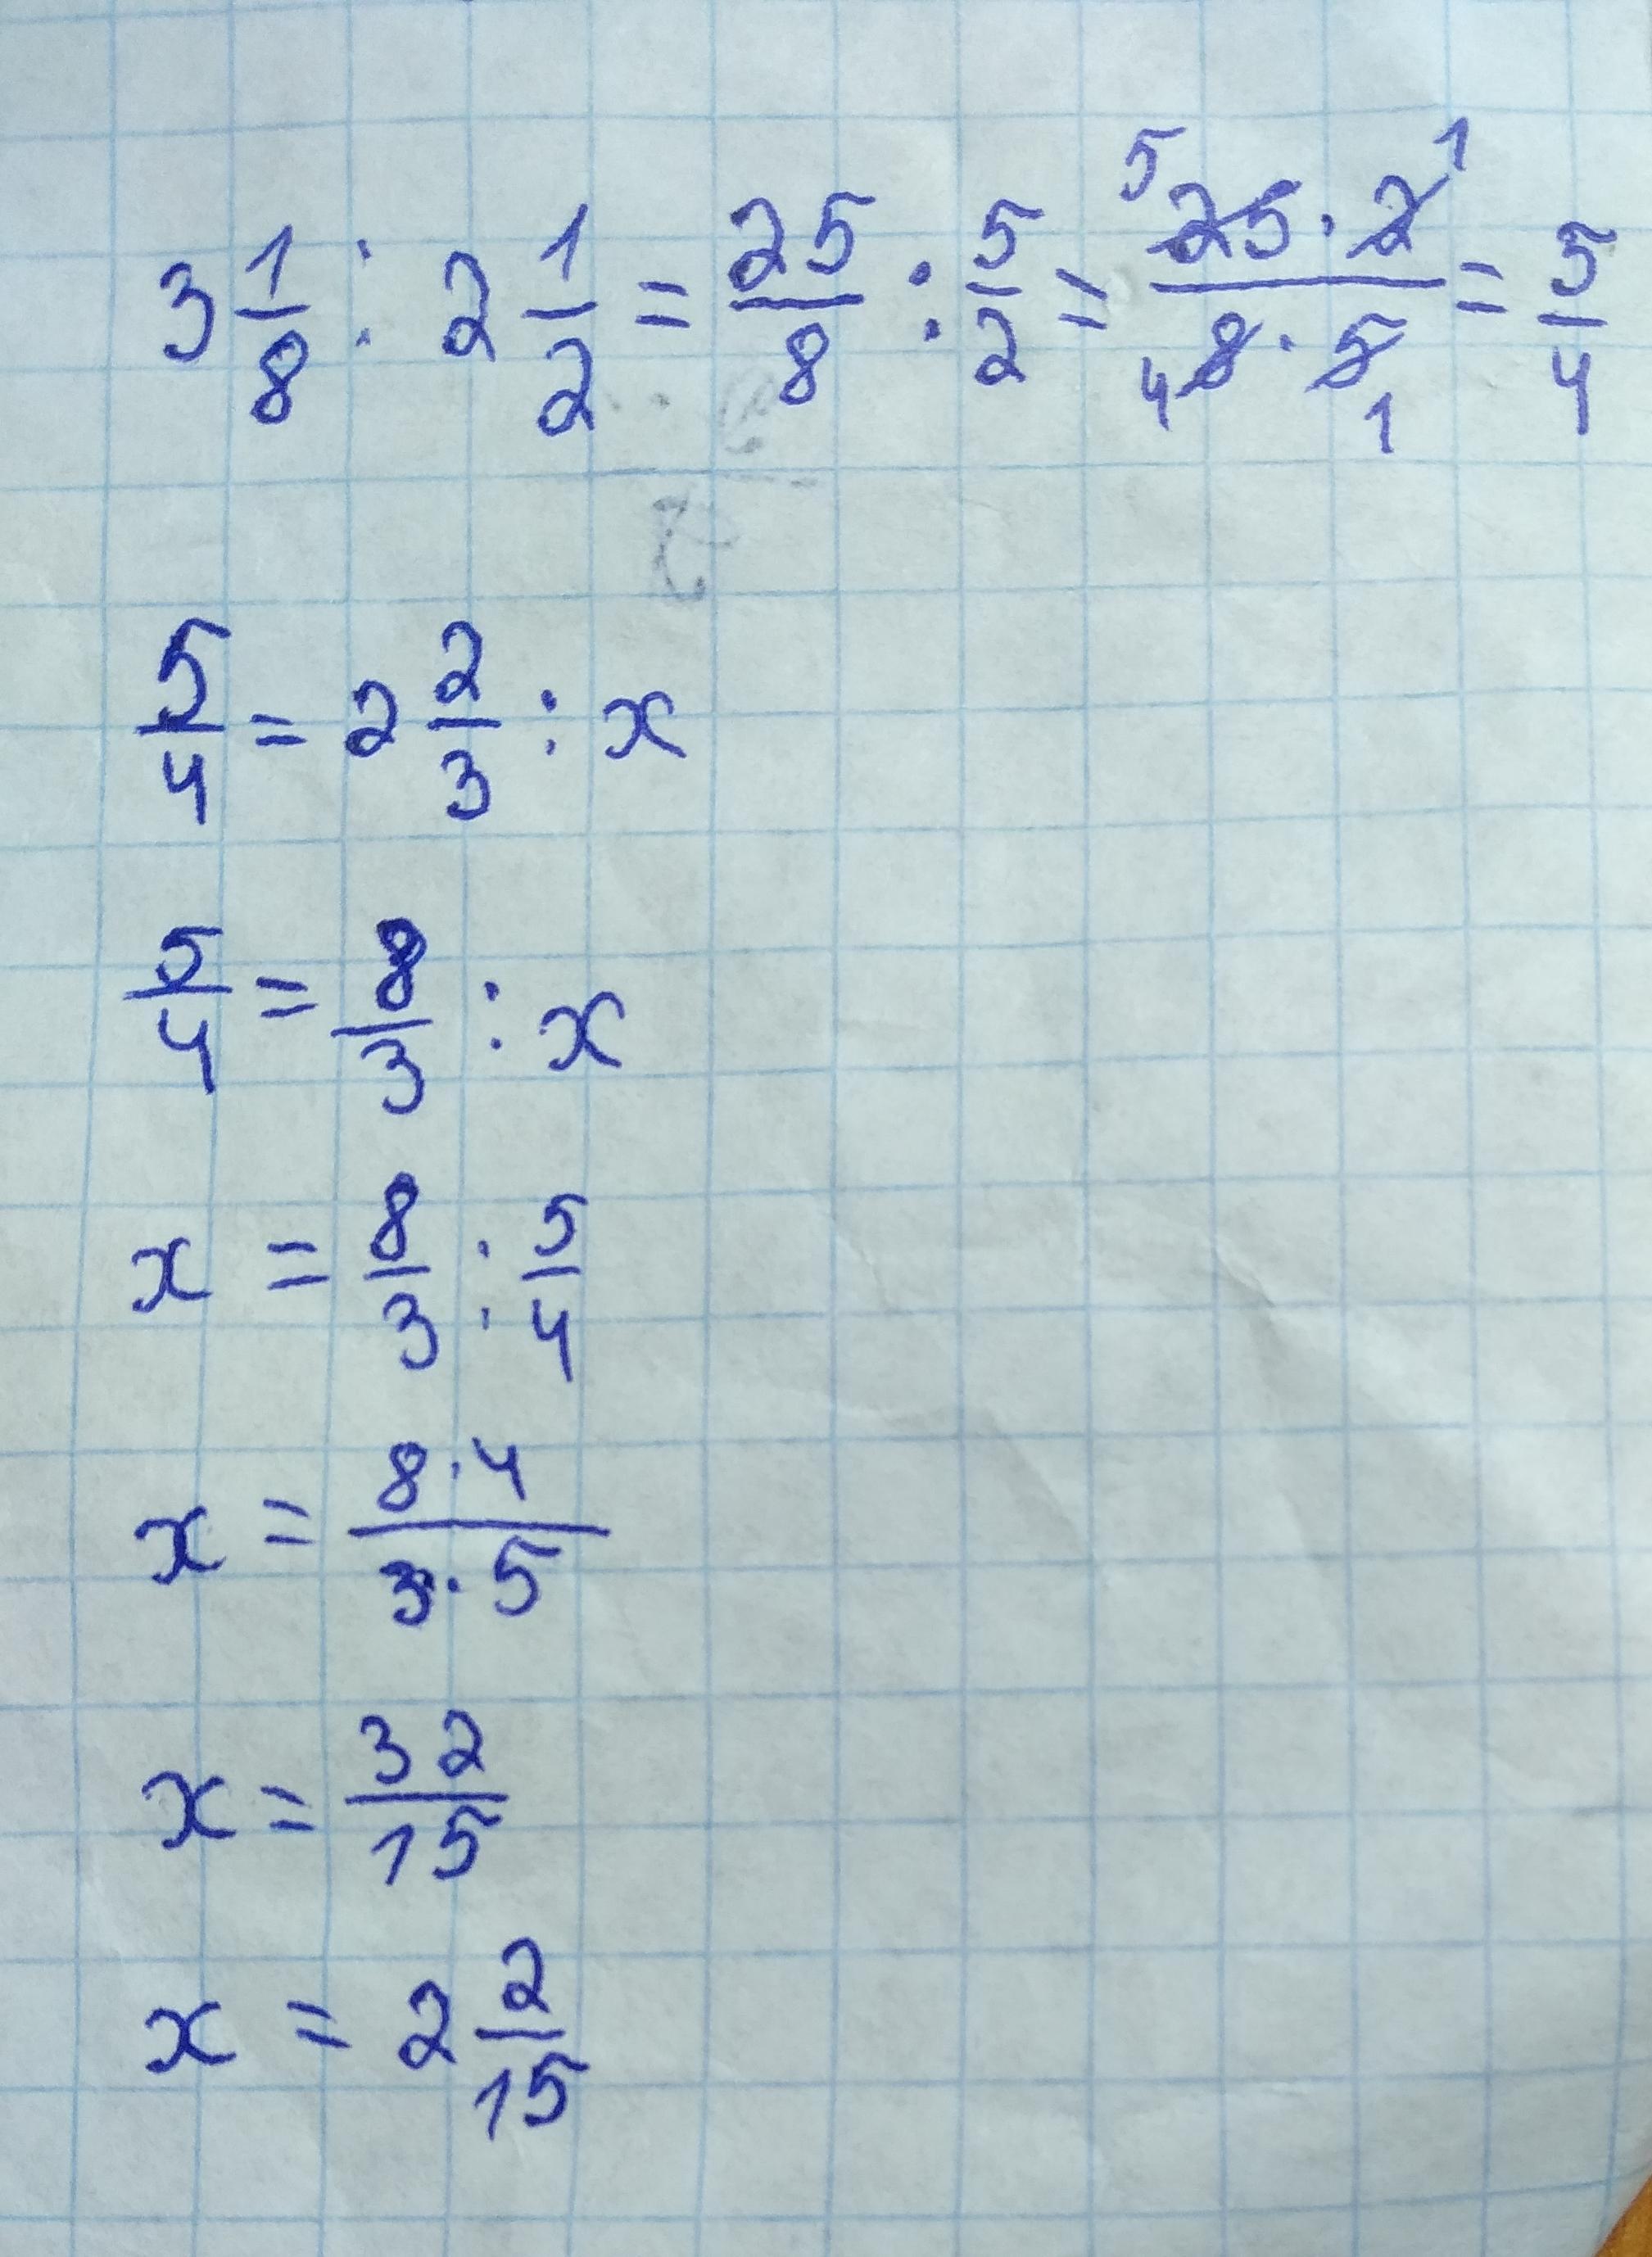 3 1/8 : 2 1/2 = 25/8 : 5/2 = 5 25 · 2 1 / 4 8 · 5 1 = 5/4
5/4 = 2 2/3 : x
5/4 = 8/3 : x
x = 8/3 : 5/4
x = 8·4/3·5
x = 32/15
x = 2 2/15